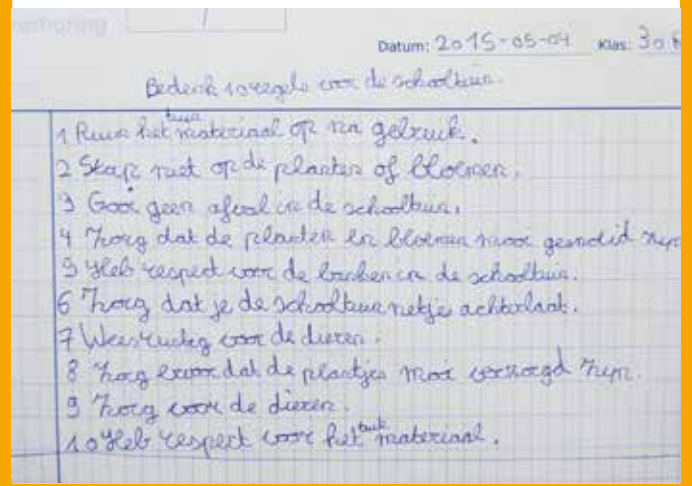 Datum: 2015-05-04 Klas: 306
Bedenk 10 regels voor de schooltuin.
1 Ruim het tuin materiaal op na gebruik.
2 Stap niet op de planten of bloemen.
3 Gooi geen afval in de schooltuin.
4 Zorg dat de planten en bloemen mooi gesnoeid zijn
5 Heb respect voor de banken in de schooltuin.
6 Zorg dat je de schooltuin netjes achterlaat.
7 Wees rustig voor de dieren.
8 Zorg ervoor dat de plantjes mooi verzorgd zijn.
9 Zorg voor de dieren.
10 Heb respect voor het tuin materiaal.